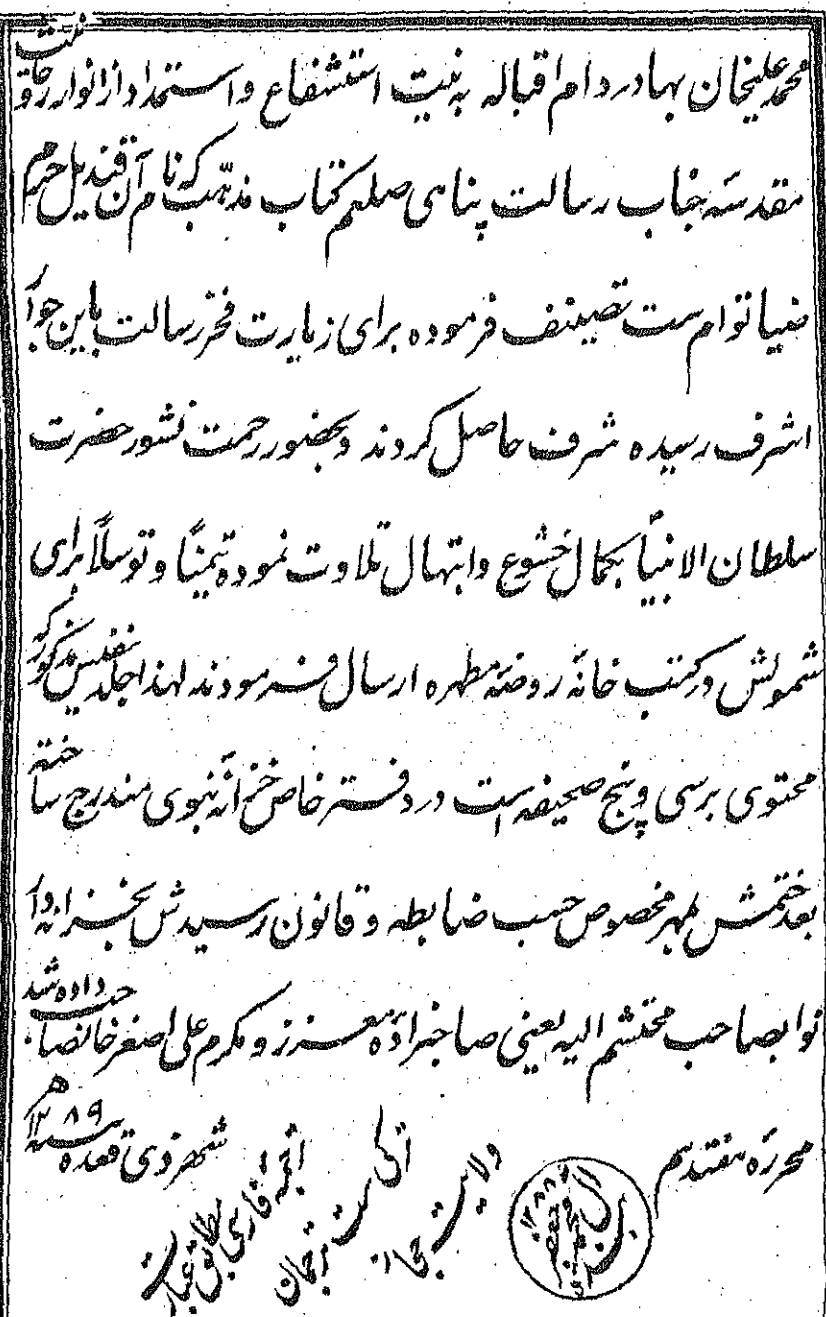 محمد علیخان بهادر دام اقباله به نیت استشفاع و استمداد از انوار روحانیت
مقدسه جناب رسالت پناهی صلعم کتاب مذهب که نام آن قندیل حرم
ضیا توام ست تصینف فرموده برای زیارت فخر رسالت باین جوار
اشرف رسیده شرف حاصل کردند و بحضور رحمت نشور حضرت
سلطان الانبیا بکمال خشوع و ابتهال تلاوت نموده تیمنًا و توسلاً برای
شمولش در کتب خانه روضهٔ مطهره ارسال فرمودند لهذا جلد نفیس مذکور که
محتوی برسی و پنج صحیفه است در دفتر خاص خزانهٔ نبوی مندرج ساخته
بعد ختمش بمهر مخصوص حسب ضابطه و قانون رسیدش بخزانه دار
نوابصاحب محتشم الیه یعنی صاحبزادهٔ معزز و مکرم علی اصغر خانصاحب داده شد
محررهٔ هفتدهم شهر ذی قعده سنه ۱۲۸۹ هـ
ترجمهٔ فارسی مطابق عبارت
ترکی ست ترجمان
ولایت حجاز
۱۲۸۸